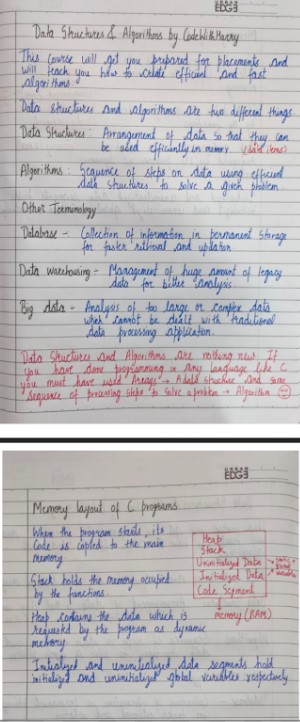 EDGE
Data Structures & Algorithms by CodeWithHarry
This Course will get you prepared for placements and
will teach you how to create efficient and fast
algorithms.
Data structures and algorithms are two different things
Data Structures: Arrangement of data so that they can
be used efficiently in memory (data items)
Algorithms: Sequence of steps on data using efficient
data structures to solve a given problem
Other Terminology
Database - Collection of information in permanent storage
for faster retrieval and updation
Data warehousing - Management of huge amount of legacy
data for better analysis.
Big data - Analysis of too large or complex data
which cannot be dealt with traditional
data processing application.
Data Structures and Algorithms are nothing new. If
you have done programming in any language like C
you must have used Arrays → A data structure and some
sequence of processing steps to solve a problem → Algorithm
EDGE
Memory layout of C programs
When the program starts, its
code is copied to the main
memory
Stack holds the memory occupied
by the functions
Heap contains the data which is
requested by the program as dynamic
memory
Initialized and uninitialized data segments hold
initialized and uninitialized global variables respectively
Heap
Stack
Uninitialized Data
Initialized Data
Code Segment
memory (RAM)